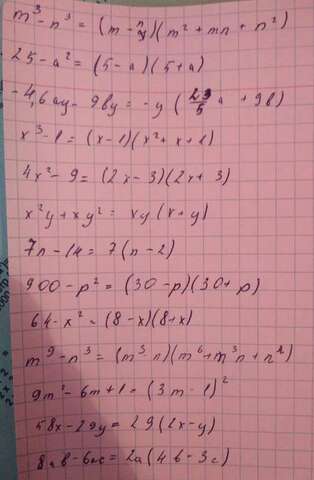 m³-n³ = (m-n)(m²+mn+n²)
25-a² = (5-a)(5+a)
-4,6ay-9by = -y(23/5 a +9b)
x³-1 = (x-1)(x²+x+1)
4x²-9 = (2x-3)(2x+3)
x²y+xy² = xy(x+y)
7n-14 = 7(n-2)
900-p² = (30-p)(30+p)
64-x² = (8-x)(8+x)
m⁹-n³ = (m³ n)(m⁶+m³n+n²)
9m²-6m+1 = (3m-1)²
58x-29y = 29(2x-y)
8ab-6ac = 2a(4b-3c)